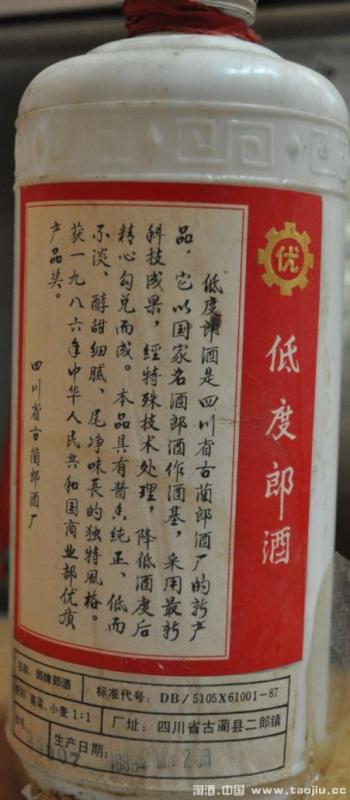 优
低度郎酒
低度郎酒是四川省古蔺郎酒厂的新产
品，它以国家名酒郎酒作酒基，采用最新
科技成果，經特殊技术处理，降低酒度后
精心勾兑而成。本品具有酱香纯正、低而
不淡、醇甜细腻、尾净味長的独特風格。
获一九八六年中华人民共和国商业部优质
产品奖。
四川省古蔺郎酒厂
名称：郎牌郎酒 标准代号：DB/5105X61001-87
高粱、小麦1:1 厂址：四川省古蔺县二郎镇
生产日期：
淘酒.中国 www.taojiu.cc